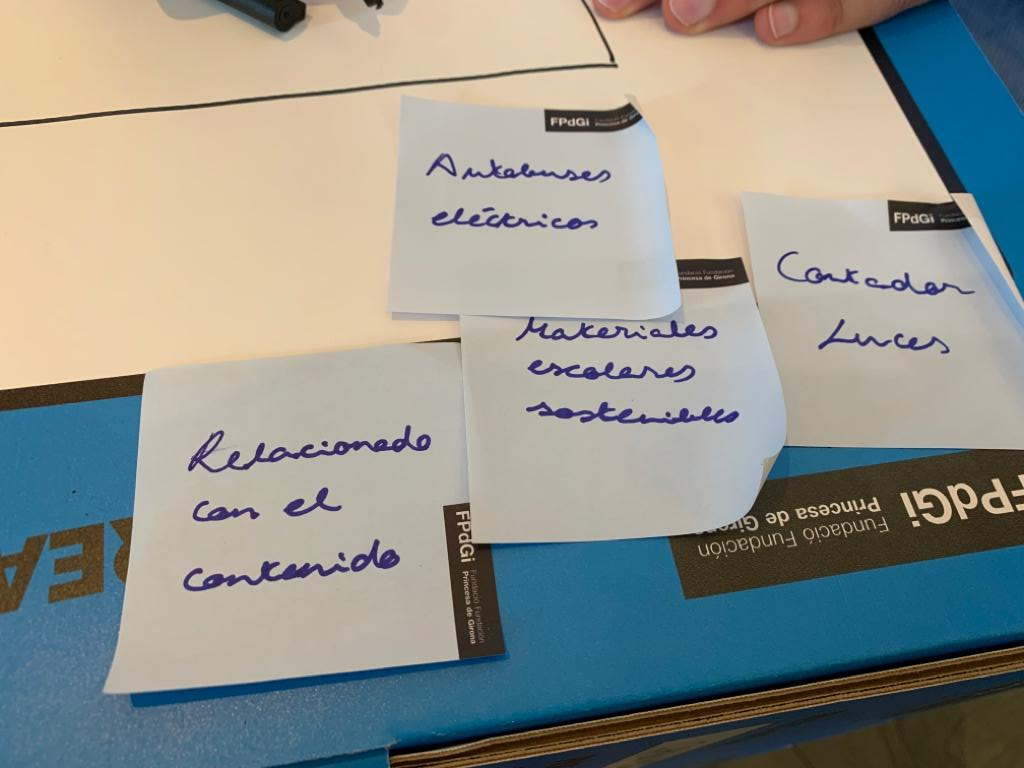 FPdGi
Fundació Fundación
Princesa de Gi
Autobuses
eléctricos
FPdGi
Contador
Luces
Fundació Fundación
Princesa de Girona
Materiales
escolares
sostenibles
Relacionado
con el
contenido
FPdGi
Fundació Fundación
Princesa de Girona
FPdGi
Fundació Fundación
Princesa de Giron
FPdGi
REA